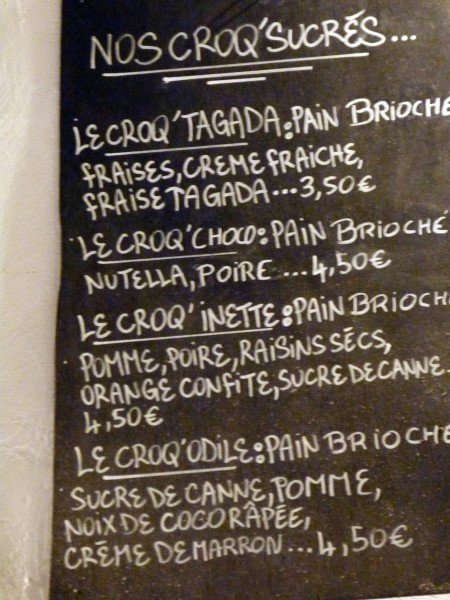 NOS CROQ'SUCRÉS...
LE CROQ'TAGADA: PAIN BRIOCHÉ
FRAISES, CREME FRAICHE,
FRAISE TAGADA...3,50€
LE CROQ'CHOCO: PAIN BRIOCHÉ
NUTELLA, POIRE...4,50€
LE CROQ'INETTE: PAIN BRIOCHÉ
POMME, POIRE, RAISINS SÉCS,
ORANGE CONFITE, SUCRE DE CANNE...
4,50€
LE CROQ'ODILE: PAIN BRIOCHÉ
SUCRE DE CANNE, POMME,
NOIX DE COCO RÂPÉE,
CRÈME DE MARRON...4,50€